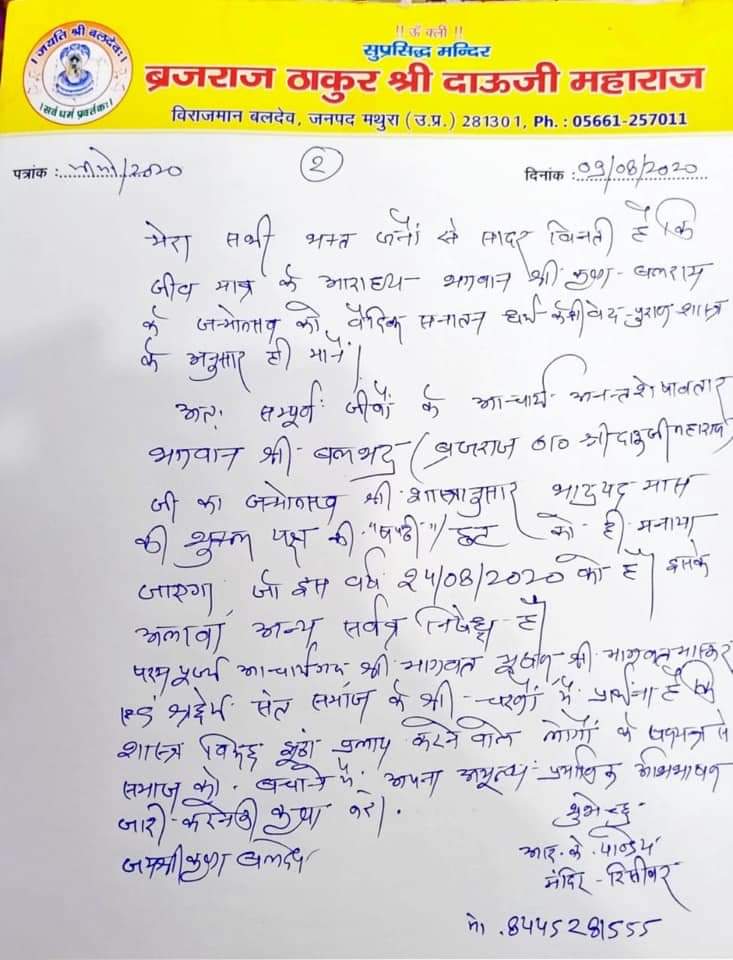 जयति श्री बलदेवः
।सर्व धर्म प्रवर्तकः।
|| ॐ क्लीं ||
सुप्रसिद्ध मन्दिर
ब्रजराज ठाकुर श्री दाऊजी महाराज
विराजमान बलदेव, जनपद मथुरा (उ.प्र.) 281301, Ph. : 05661-257011
पत्रांक :...../2020
2
दिनांक : 09/08/2020
मेरा सभी भक्त जनों से सादर विनती है कि
जीव मात्र के आराध्य भगवान श्री कृष्ण-बलराम
के जन्मोत्सव को वैदिक सनातन धर्म वेद-पुराण शास्त्र
के अनुसार ही मानें।
अतः सम्पूर्ण जीवों के आचार्य अनन्तशेषावतार
भगवान श्री बलभद्र (ब्रजराज ठा० श्री दाऊजी महाराज
जी का जन्मोत्सव श्री शास्त्रानुसार भाद्रपद मास
की शुक्ल पक्ष की "षष्ठी"/छट को ही मनाया
जाएगा जो इस वर्ष 24/08/2020 को है। इसके
अलावा अन्य सर्वत्र निषेध है।
परम पूज्य आचार्यगण श्री भागवत भूषण श्री भागवत भास्कर
एवं श्रद्धेय संत समाज के श्री-चरणों में प्रार्थना है कि
शास्त्र विरुद्ध झूठा प्रलाप करने वाले लोगों के षडयन्त्र से
समाज को बचाने में अपना अमूल्य प्रमाणिक अभिभाषण
जारी करने की कृपा करें।
शुभेच्छु
जय श्री कृष्ण बलदेव
आर. के. पाण्डेय
मंदिर-रिसीवर
मो. 8445281555